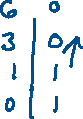 6 | 0
3 | 0 ↑
1 | 1
0 | 1